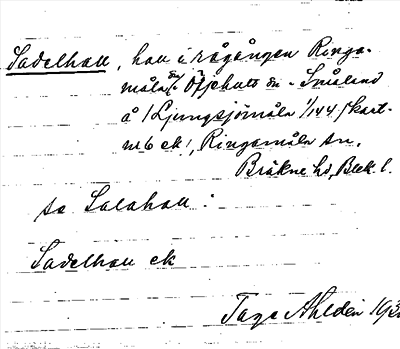 Sadelhall, hall i rågången Ringa-
måla sn - Älghult sn - Småland
å /Ljungsjömåla 1/144/ kart-
nr 6 ek/, Ringamåla sn,
Bräkne hd, Blek. l.
sa Salahall :
Sadelhall ek
Tage Ahldén 193